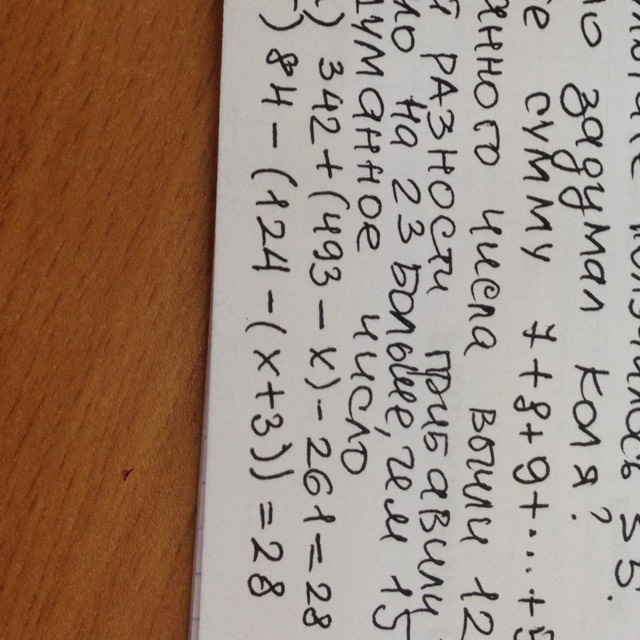 35.
но задумал Коля?
сумму 7+8+9+...+
нного числа вычли 12
РАЗНОСТИ ПРИБАВИЛИ
на 23 больше, чем 15
уманное число
) 342+(493-x)-261=28
) 84-(124-(x+3))=28